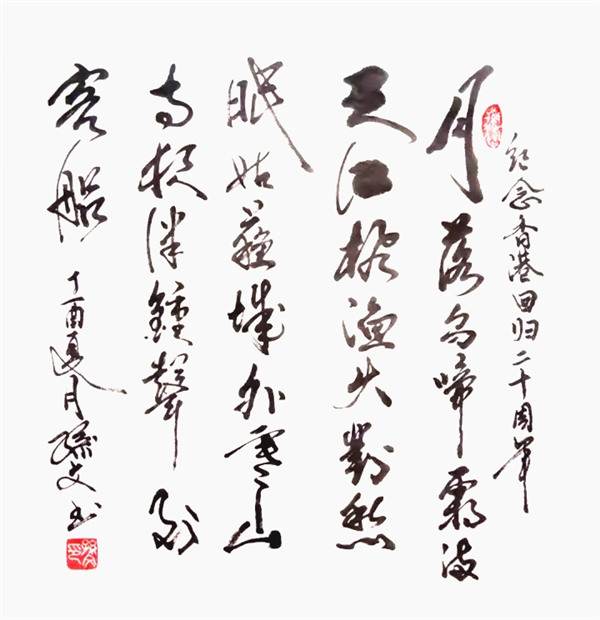 纪念香港回归二十周年
月落乌啼霜满
天江枫渔火對愁
眠姑蘇城外寒山
寺夜半鍾聲到
客船 丁酉夏月孫文书